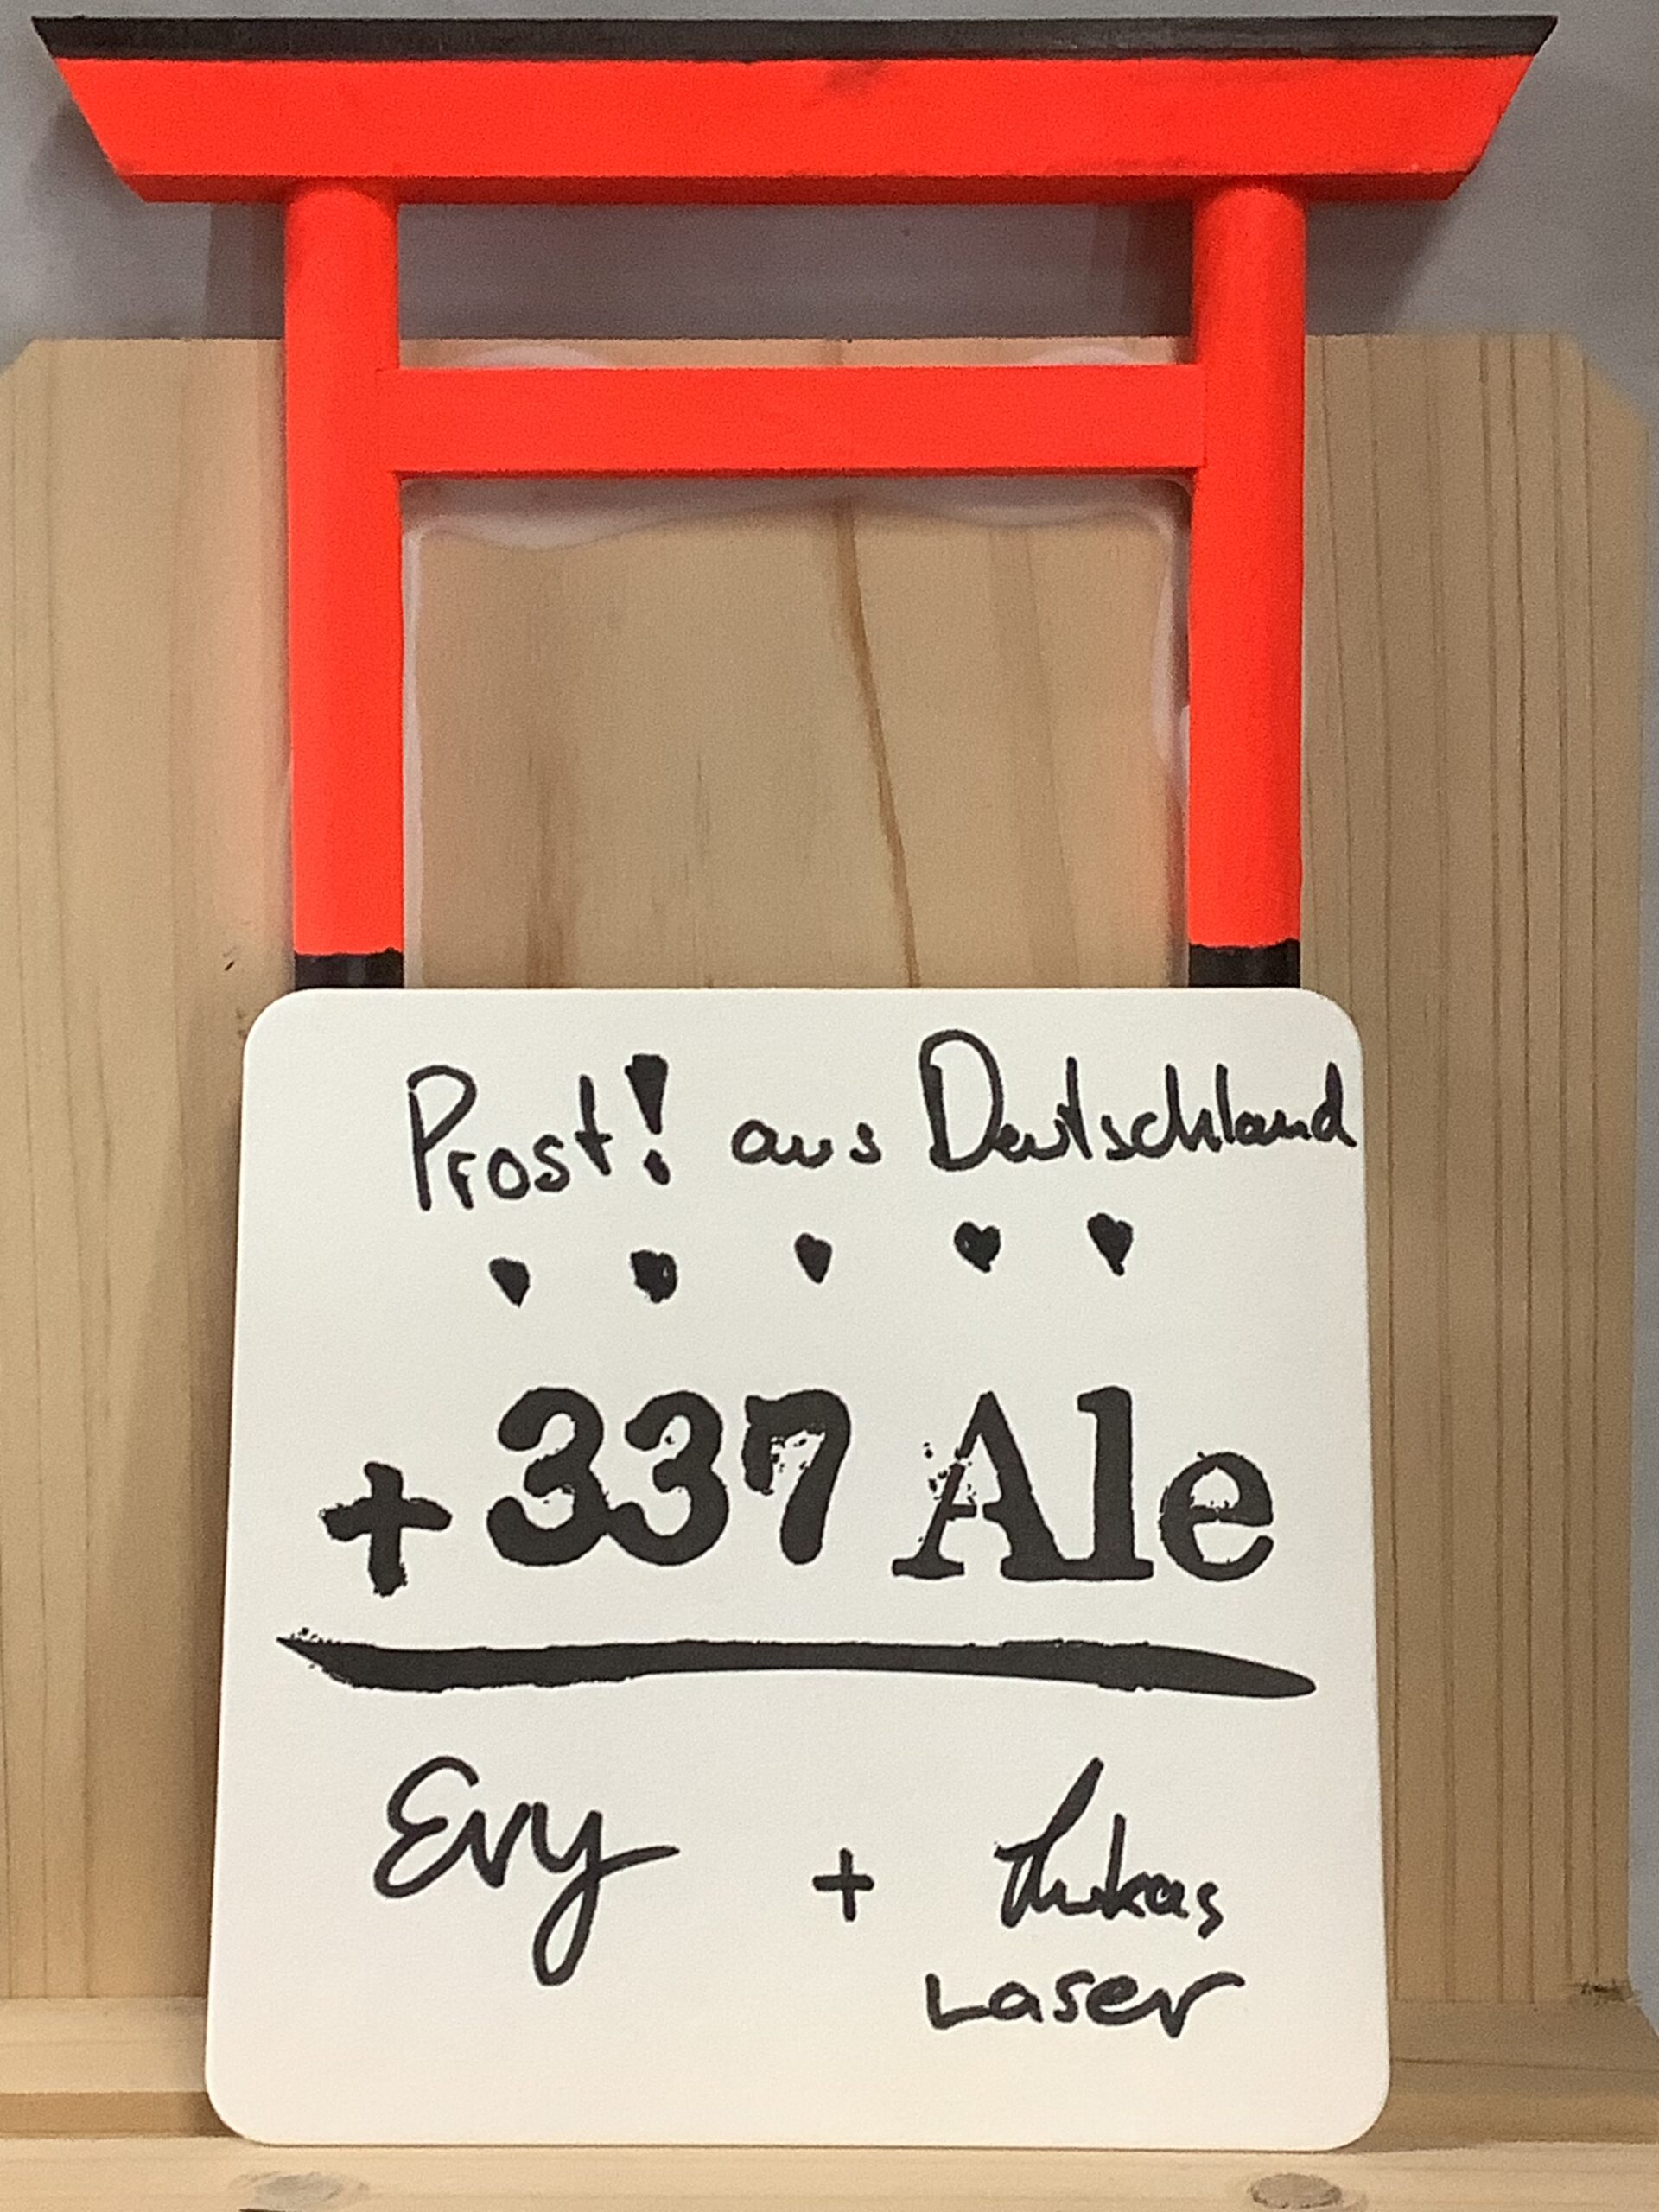 Prost! aus Deutschland
+337 Ale
Evy + Lukas
Laser